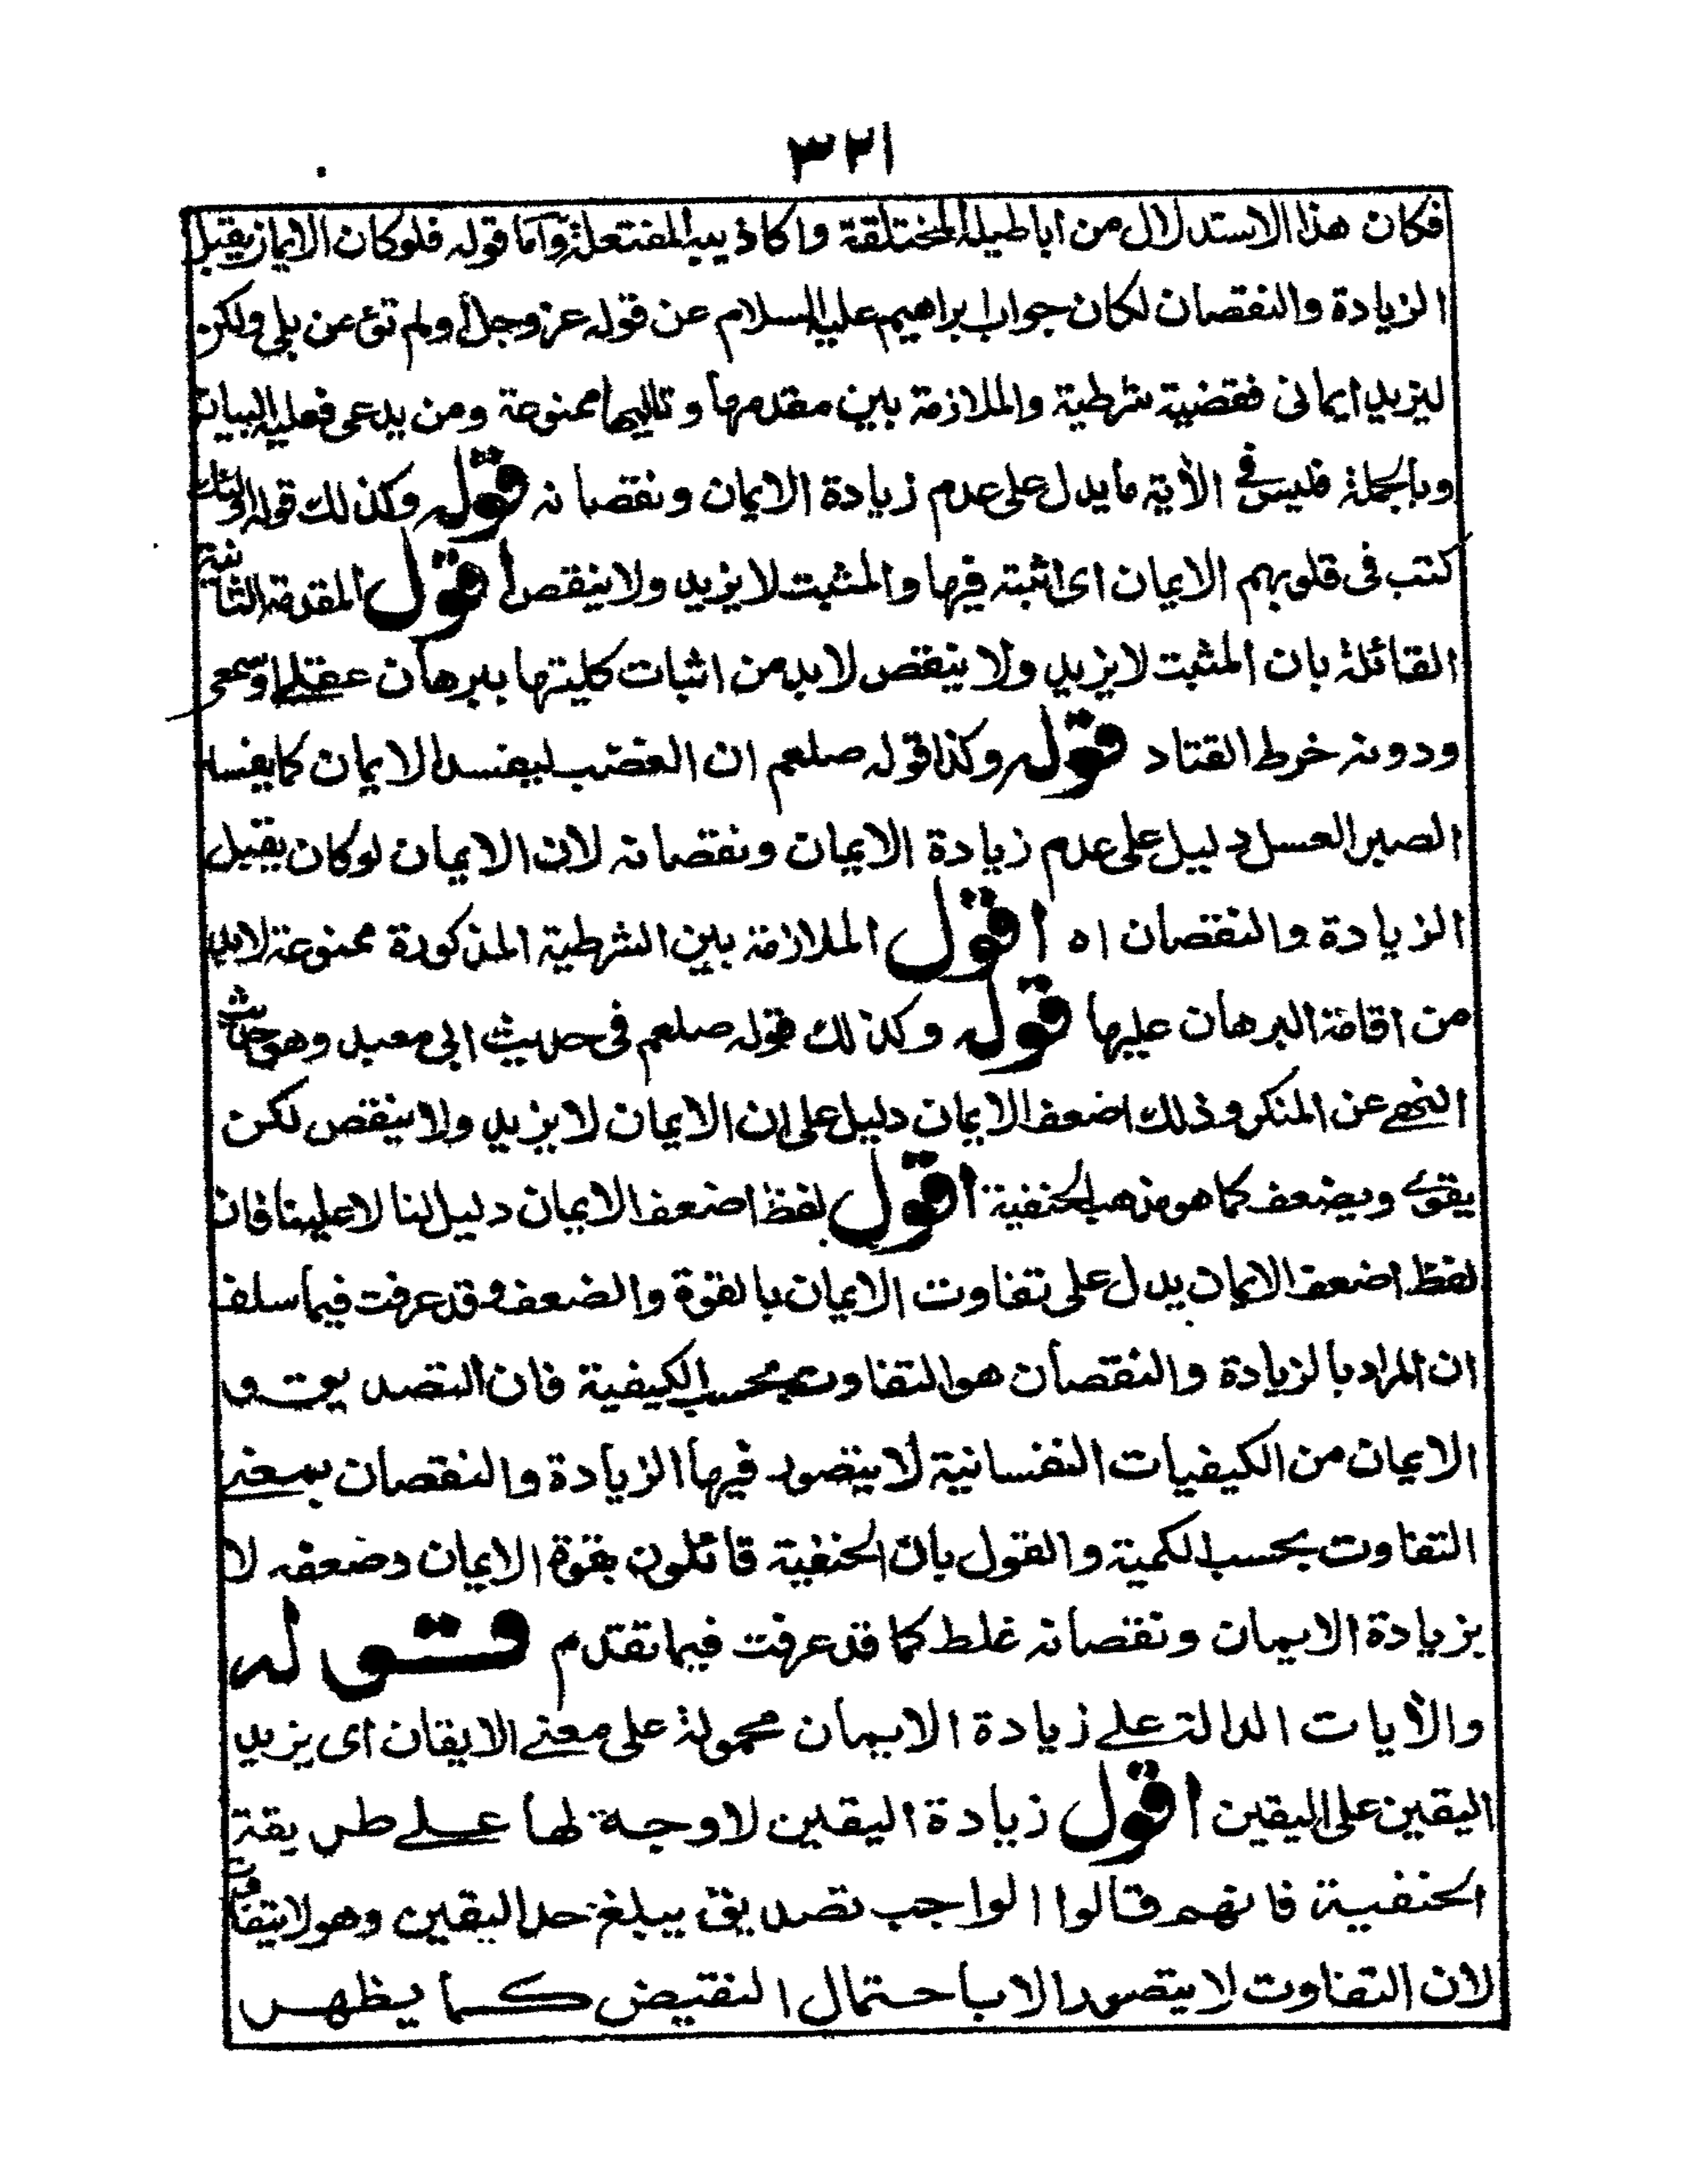 ٣٢١
فكان هذا الاستدلال من اباطيله المختلقة واكاذيبه المفتعلة وآما قوله فلوكان الايمان يقبل
الزيادة والنقصان لكان جواب ابراهيم عليه السلام عن قوله عزوجل أولم تؤمن بلى ولكن
ليزيد ايمانى فقضية شرطية والملازمة بين مقدمها وتاليها ممنوعة ومن يدعى فعليه البيان
وبالجملة فليس فى الأية ما يدل على عدم زيادة الايمان ونقصانه قوله وكذلك قوله اولئك
كتب فى قلوبهم الايمان اى اثبته فيها والمثبت لا يزيد ولا ينقص اقول المقدمة الثانية
القائلة بان المثبت لا يزيد ولا ينقص لابد من اثبات كليتها ببرهان عقلى اوسمعى
ودونه خرط القتاد قوله وكذا قوله صلعم ان الغضب ليفسد الايمان كما يفسد
الصبر العسل دليل على عدم زيادة الايمان ونقصانه لان الايمان لوكان يقبل
الزيادة والنقصان اه اقول الملازمة بين الشرطية المذكورة ممنوعة لابد
من اقامة البرهان عليها قوله وكذلك قوله صلعم فى حديث ابى معبد وهو حديث
النهى عن المنكر وذلك اضعف الايمان دليل على ان الايمان لا يزيد ولا ينقص لكن
يقوى ويضعف كما هو مذهب الحنفية اقول لفظ اضعف الايمان دليل لنا لا علينا فان
لفظ اضعف الايمان يدل على تفاوت الايمان بالقوة والضعف وقد عرفت فيما سلف
ان المراد بالزيادة والنقصان هو التفاوت بحسب الكيفية فان التصديق و
الايمان من الكيفيات النفسانية لا يتصور فيها الزيادة والنقصان بمعنى
التفاوت بحسب الكمية والقول بان الحنفية قائلون بقوة الايمان وضعفه لا
بزيادة الايمان ونقصانه غلط كما قد عرفت فيما تقدم قوله
والأيات الدالة على زيادة الايمان محمولة على معنى الايقان اى يزيد
اليقين على اليقين اقول زيادة اليقين لاوجه لها على طريقة
الحنفية فانهم قالوا الواجب تصديق يبلغ حد اليقين وهو لا يتفاوت
لان التفاوت لا يتصور الا باحتمال النقيض كما يظهر